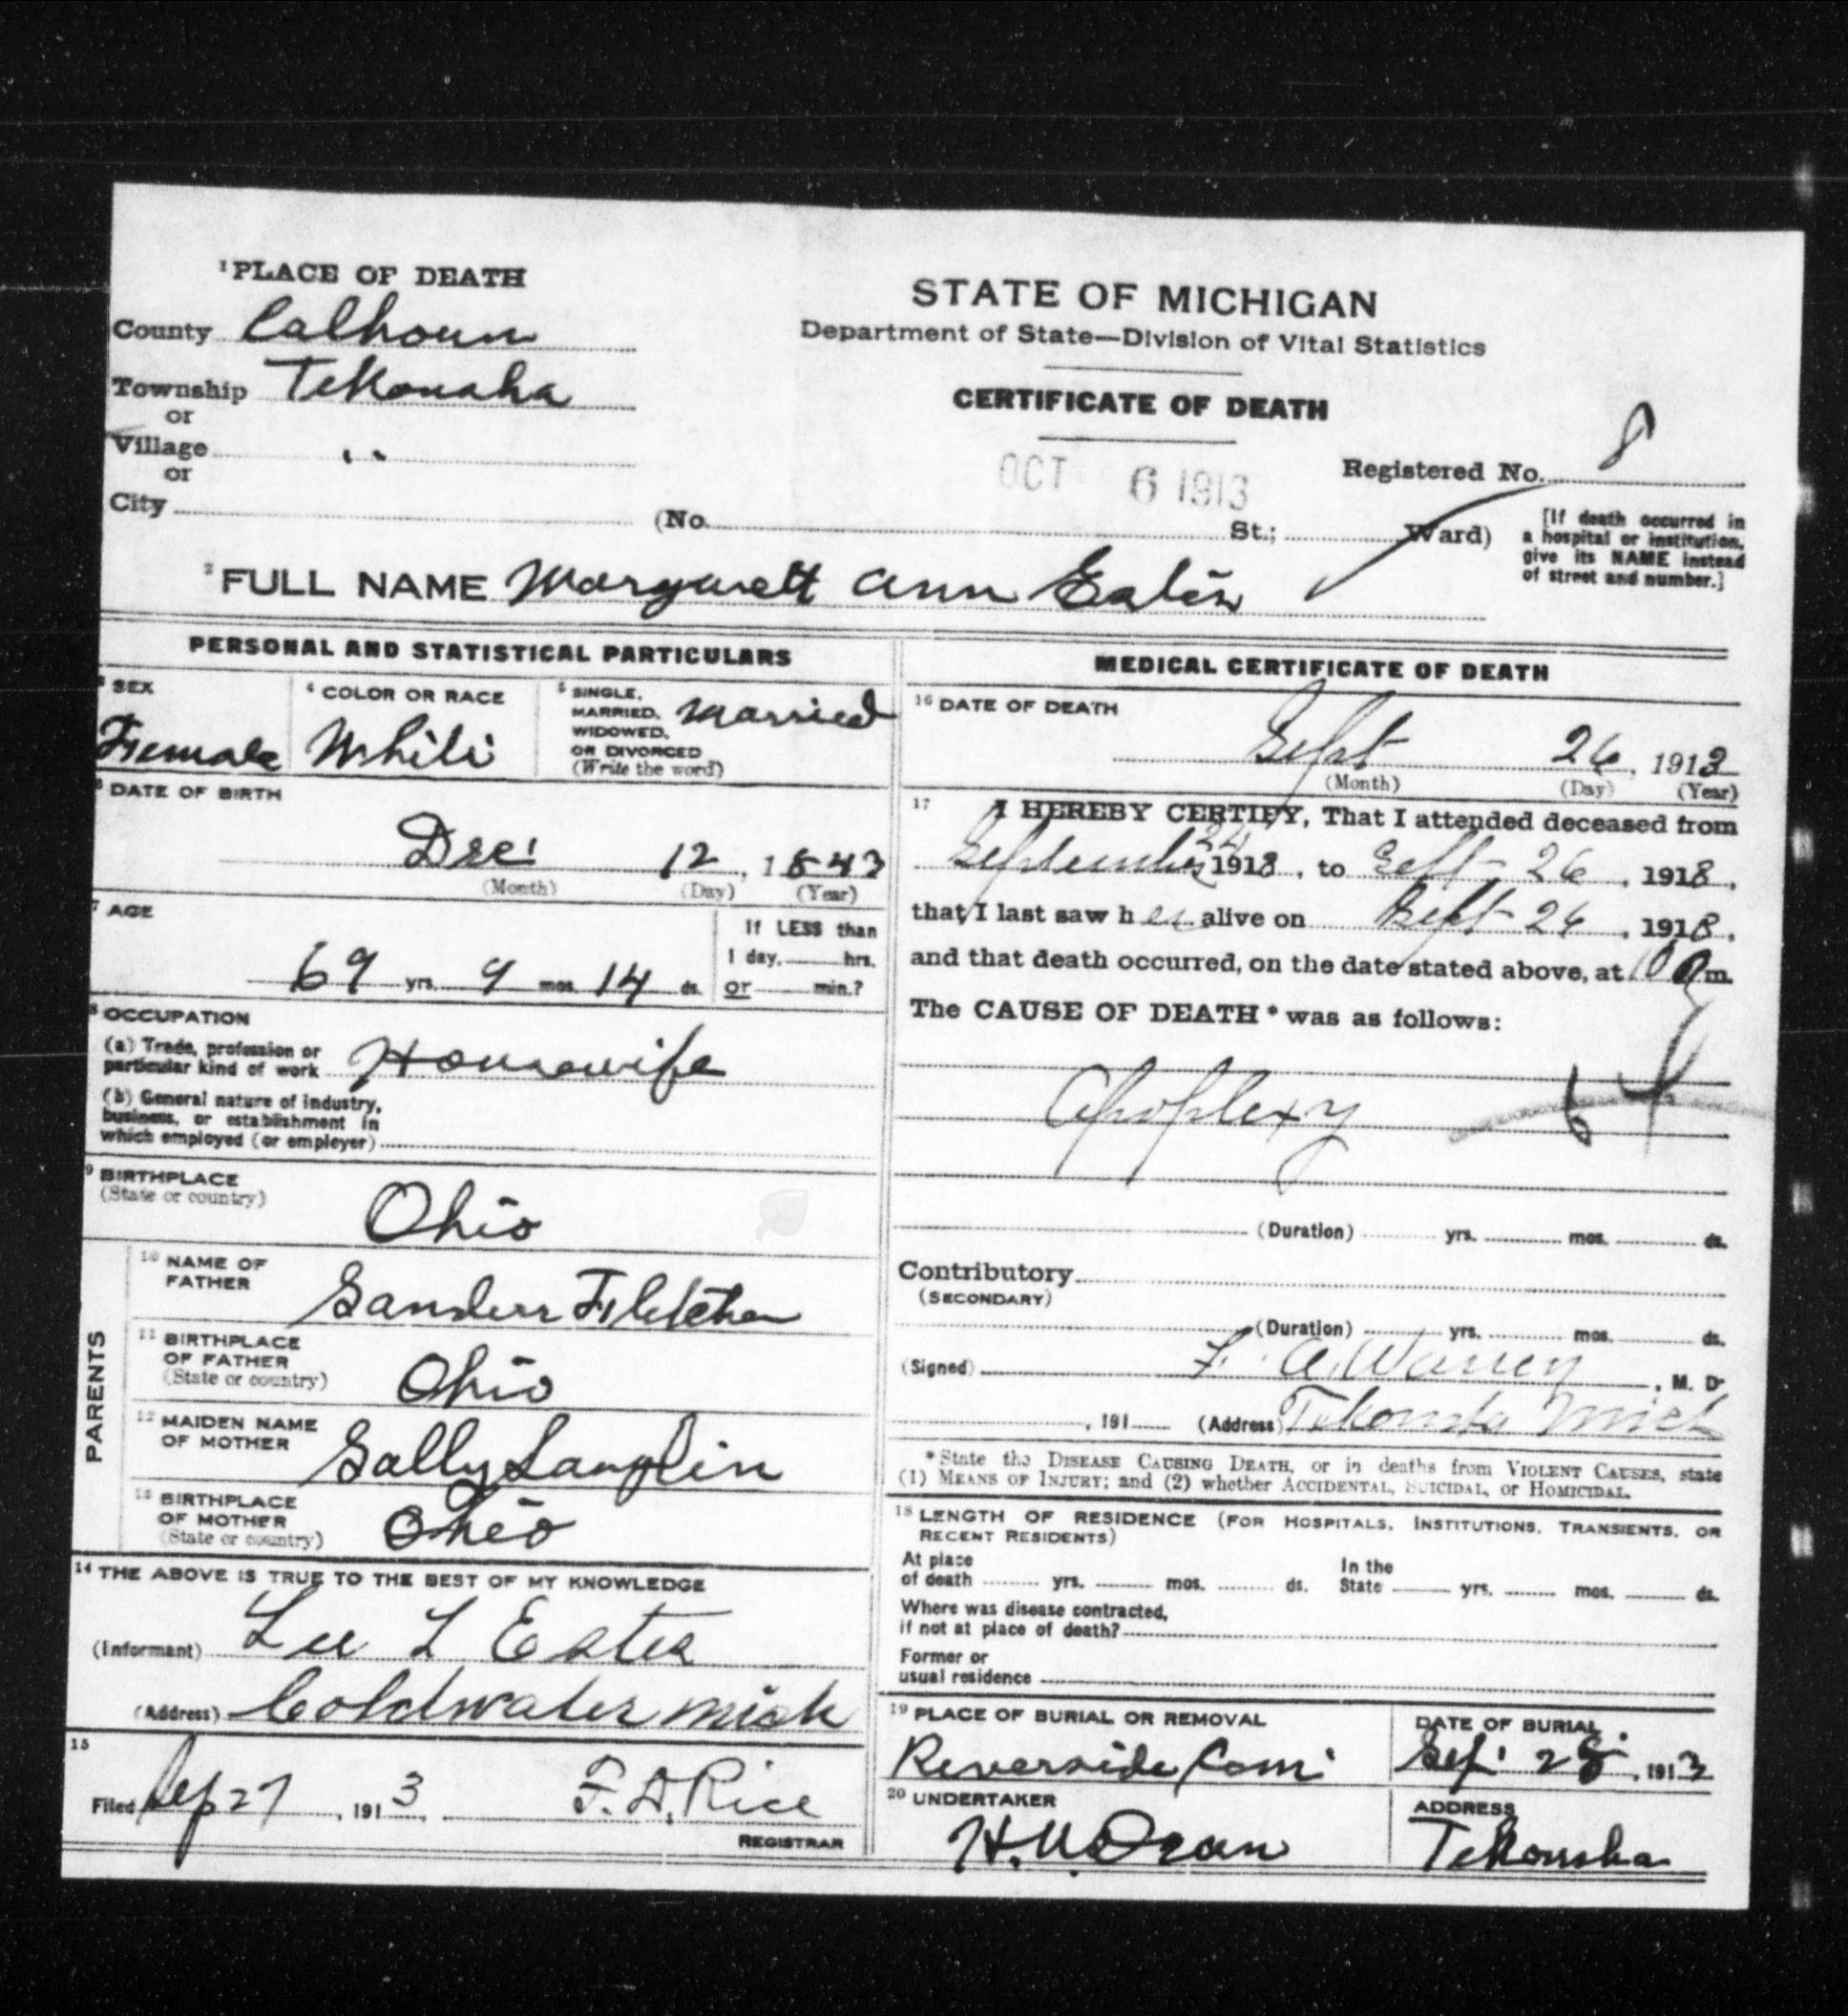 1 PLACE OF DEATH
County Calhoun
Township Tekonsha
or
Village " "
or
City
STATE OF MICHIGAN
Department of State—Division of Vital Statistics
CERTIFICATE OF DEATH
OCT 6 1913
Registered No. 8
(No. St.; Ward)
[If death occurred in
a hospital or institution,
give its NAME instead
of street and number.]
2 FULL NAME Margarett Ann
PERSONAL AND STATISTICAL PARTICULARS
3 SEX
Female
4 COLOR OR RACE
White
5 SINGLE,
MARRIED,
WIDOWED,
OR DIVORCED
(Write the word)
Married
6 DATE OF BIRTH
Dec 12, 1843
(Month) (Day) (Year)
7 AGE
69 yrs. 9 mos. 14 ds.
If LESS than
1 day, hrs.
or min.?
8 OCCUPATION
(a) Trade, profession or
particular kind of work Housewife
(b) General nature of industry,
business, or establishment in
which employed (or employer)
9 BIRTHPLACE
(State or country)
Ohio
PARENTS
10 NAME OF
FATHER
Sanders Fletcher
11 BIRTHPLACE
OF FATHER
(State or country)
Ohio
12 MAIDEN NAME
OF MOTHER
Sally
13 BIRTHPLACE
OF MOTHER
(State or country)
Ohio
14 THE ABOVE IS TRUE TO THE BEST OF MY KNOWLEDGE
(Informant) Lee L
(Address) Coldwater Mich
15
Filed Sep 27, 1913 F. A. Rice
REGISTRAR
MEDICAL CERTIFICATE OF DEATH
16 DATE OF DEATH
Sept 26, 1913
(Month) (Day) (Year)
17 I HEREBY CERTIFY, That I attended deceased from
September 24 1913, to Sept 26, 1913,
that I last saw her alive on Sept 26, 1913,
and that death occurred, on the date stated above, at 10 m.
The CAUSE OF DEATH * was as follows:
Apoplexy 64
(Duration) yrs. mos. ds.
Contributory
(SECONDARY)
(Duration) yrs. mos. ds.
(Signed) A. Warren, M. D.
, 191 (Address) Tekonsha Mich
*State the DISEASE CAUSING DEATH, or in deaths from VIOLENT CAUSES, state
(1) MEANS OF INJURY; and (2) whether ACCIDENTAL, SUICIDAL, or HOMICIDAL.
18 LENGTH OF RESIDENCE (FOR HOSPITALS, INSTITUTIONS, TRANSIENTS, OR
RECENT RESIDENTS)
At place
of death yrs. mos. ds.
In the
State yrs. mos. ds.
Where was disease contracted,
if not at place of death?
Former or
usual residence
19 PLACE OF BURIAL OR REMOVAL
Riverside Cem
DATE OF BURIAL
Sep 28, 1913
20 UNDERTAKER
ADDRESS
Tekonsha